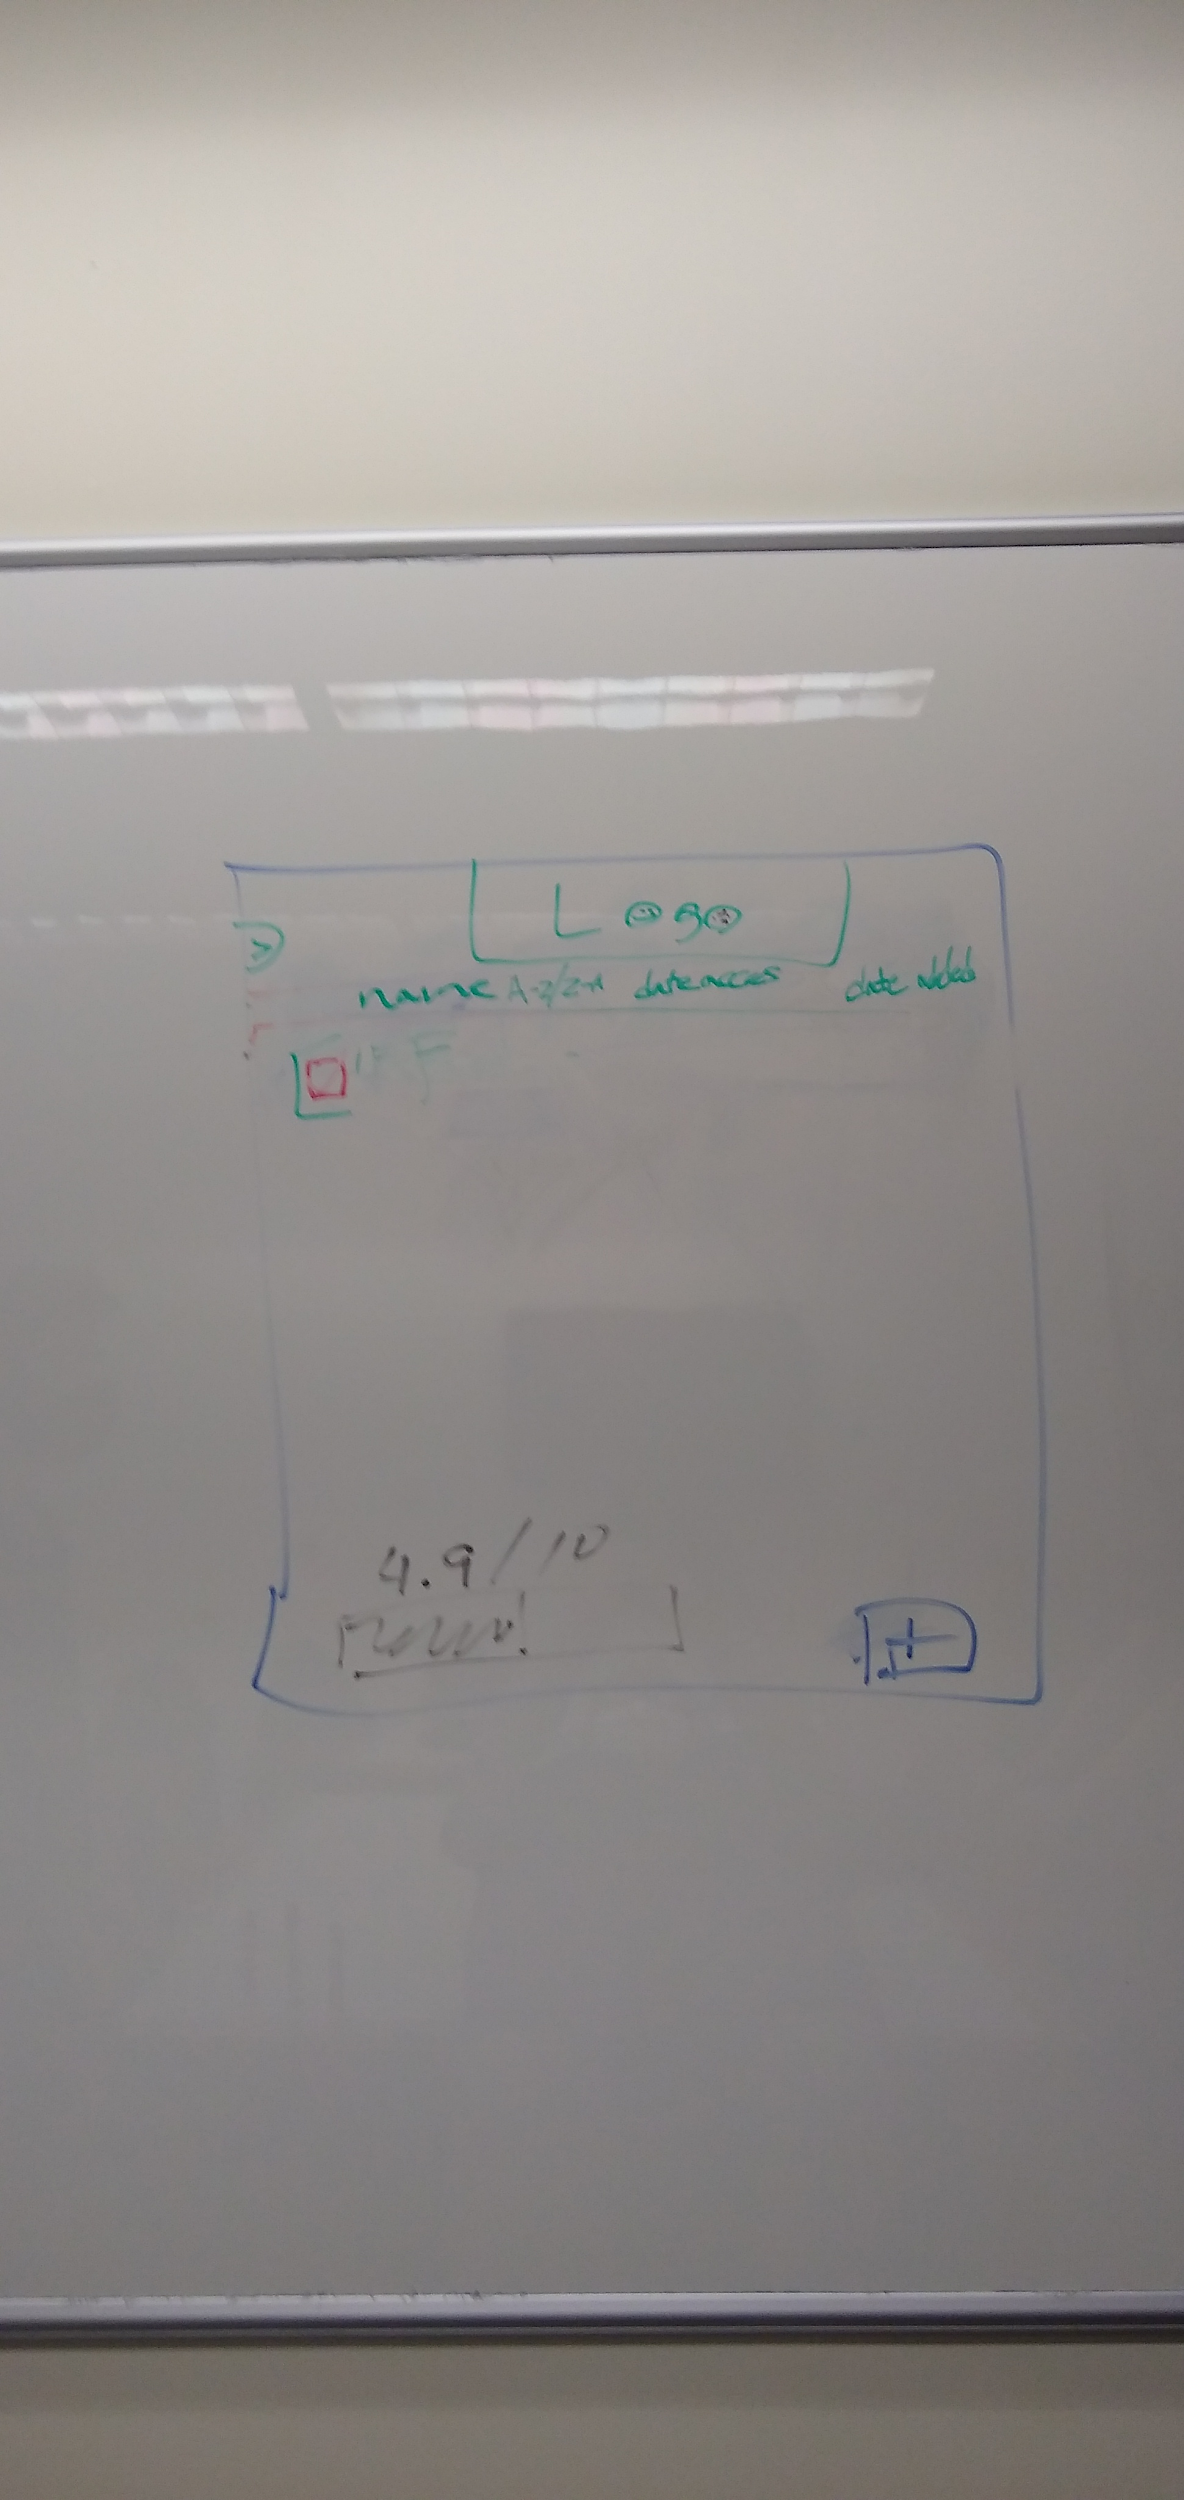 Logo
>
name A-Z/Z-A date acces date added
4.9/10
+